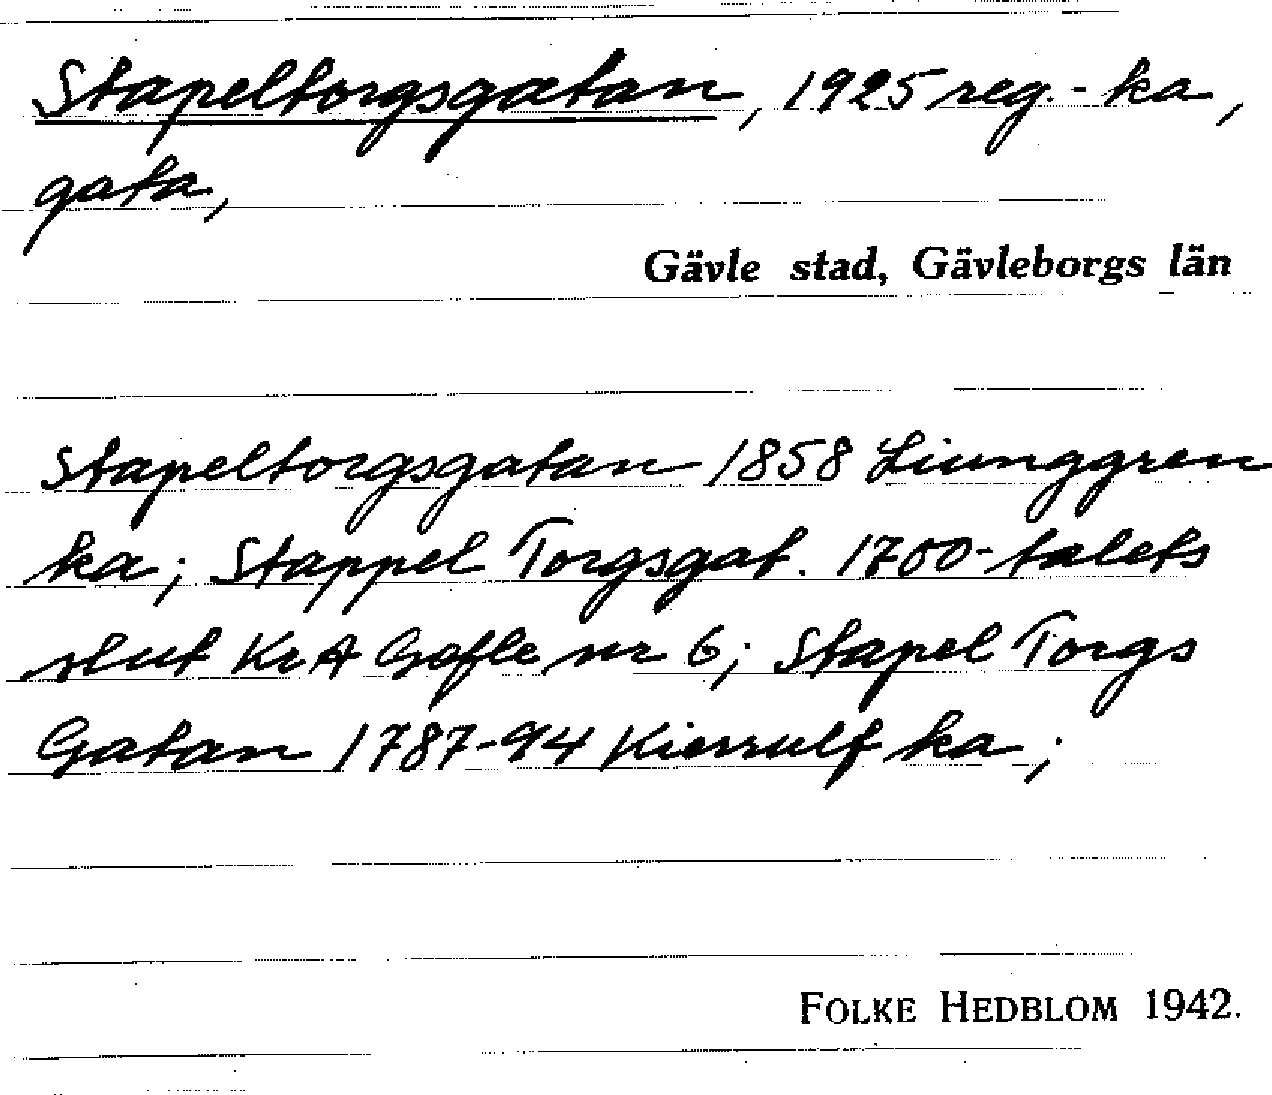 Stapeltorgsgatan, 1925 reg.-ka,
gata,
Gävle stad, Gävleborgs län
Stapeltorgsgatan 1858 Liunggren
ka; Stappel Torgsgat. 1700-talets
slut KrA Gefle nr 6; Stapel Torgs
Gatan 1787-94 Kierrulf ka;
FOLKE HEDBLOM 1942.